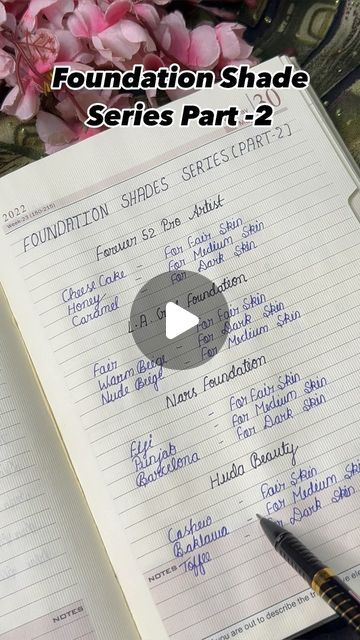 Foundation Shade
Series Part -2
30
2022
Week-23 (150-215)
FOUNDATION SHADES SERIES [PART-2]
Forever 52 Pro Artist
Cheese Cake - For Fair Skin
Honey - For Medium Skin
Caramel - For Dark Skin
L.A. Girl Foundation
Fair - For Fair Skin
Warm Beige - For Dark Skin
Nude Beige - For Medium Skin
Nars Foundation
Fiji - For Fair Skin
Punjab - For Medium Skin
Barcelona - For Dark Skin
Huda Beauty
Cashew - Fair Skin
Baklawa - For Medium Skin
Toffee - For Dark Skin
NOTES
NOTES
you are out to describe the tr